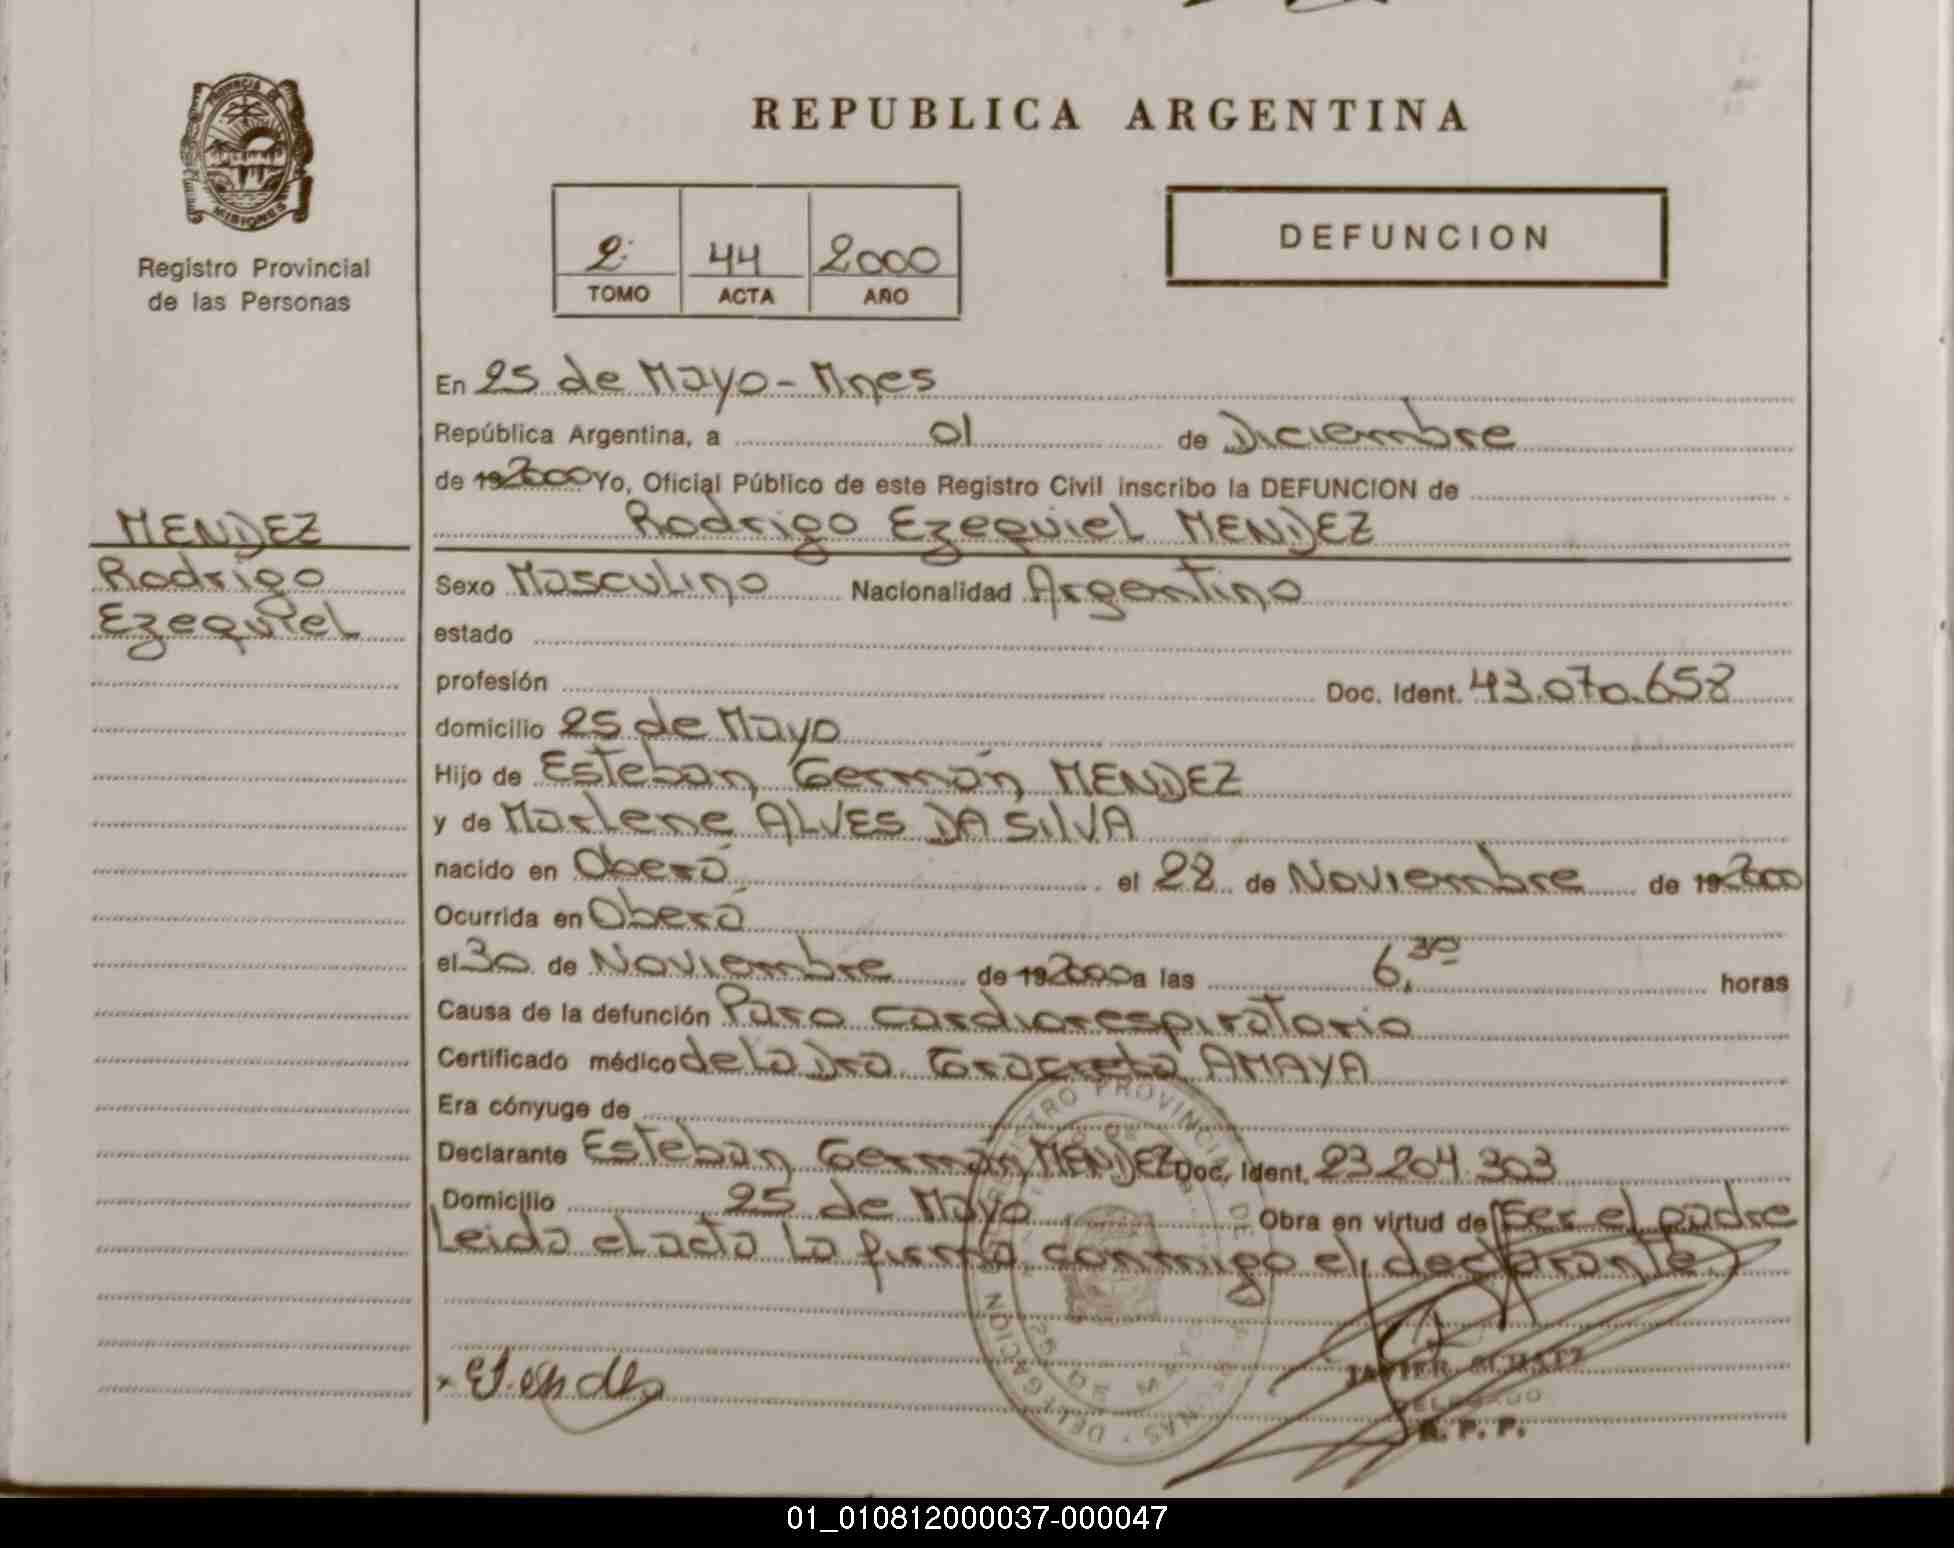 PROVINCIA DE
MISIONES
Registro Provincial
de las Personas
REPUBLICA ARGENTINA
2º 44 2000
TOMO ACTA AÑO
DEFUNCION
En 25 de Mayo - Mnes
República Argentina, a 01 de Diciembre
de 19 2000 Yo, Oficial Público de este Registro Civil inscribo la DEFUNCION de
Rodrigo Ezequiel MENDEZ
MENDEZ
Rodrigo
Ezequiel
Sexo Masculino Nacionalidad Argentino
estado
profesión Doc. Ident. 43.070.658
domicilio 25 de Mayo
Hijo de Esteban Germán MENDEZ
y de Marlene ALVES DA SilVA
nacido en Oberá el 28 de Noviembre de 19 2000
Ocurrida en Oberá
el 30 de Noviembre de 19 2000 a las 6,30 horas
Causa de la defunción Paro cardiorespiratorio
Certificado médico de la Dra AMAYA
Era cónyuge de
Declarante Esteban Germán MENDEZ Doc. Ident. 23.204.303
Domicilio 25 de Mayo Obra en virtud de Ser el padre
Leida el acta la firma conmigo el declarante
REGISTRO PROVINCIAL DE
DELEGACION
25 DE MAYO
JAVIER SCHATZ
DELEGADO
R. P. P.
01_010812000037-000047